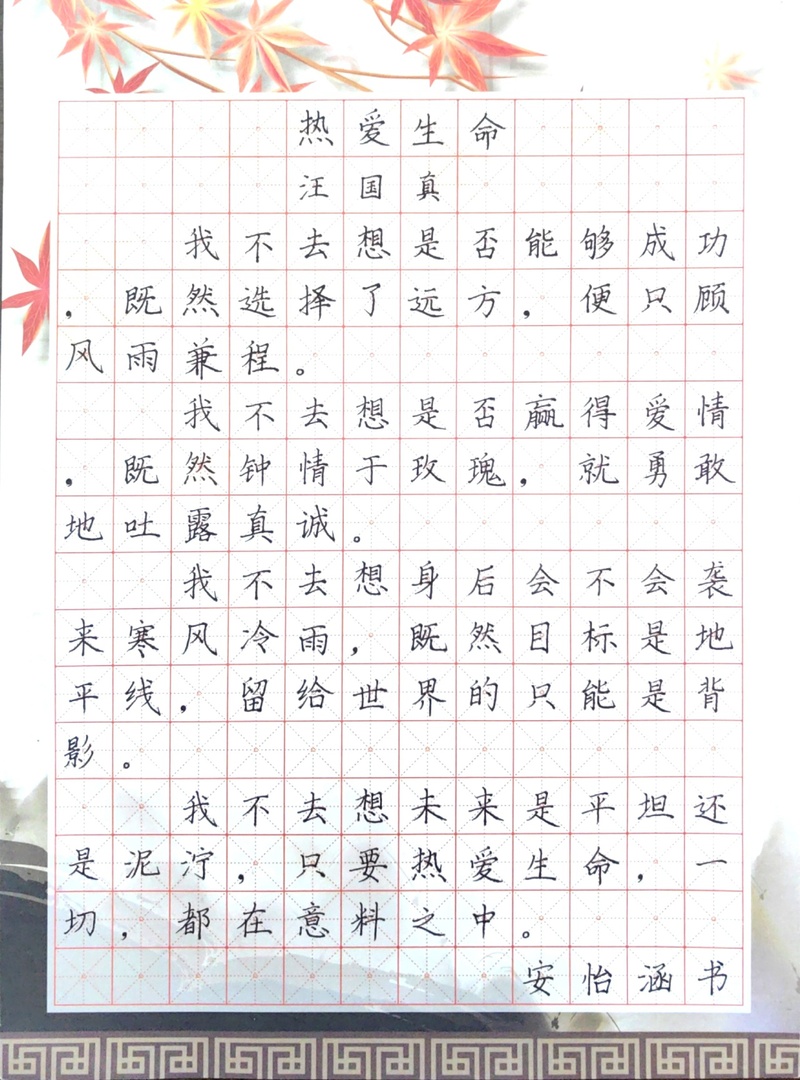 热爱生命
汪国真
我不去想是否能够成功
，既然选择了远方，便只顾
风雨兼程。
我不去想是否赢得爱情
，既然钟情于玫瑰，就勇敢
地吐露真诚。
我不去想身后会不会袭
来寒风冷雨，既然目标是地
平线，留给世界的只能是背
影。
我不去想未来是平坦还
是泥泞，只要热爱生命，一
切，都在意料之中。
安怡涵书